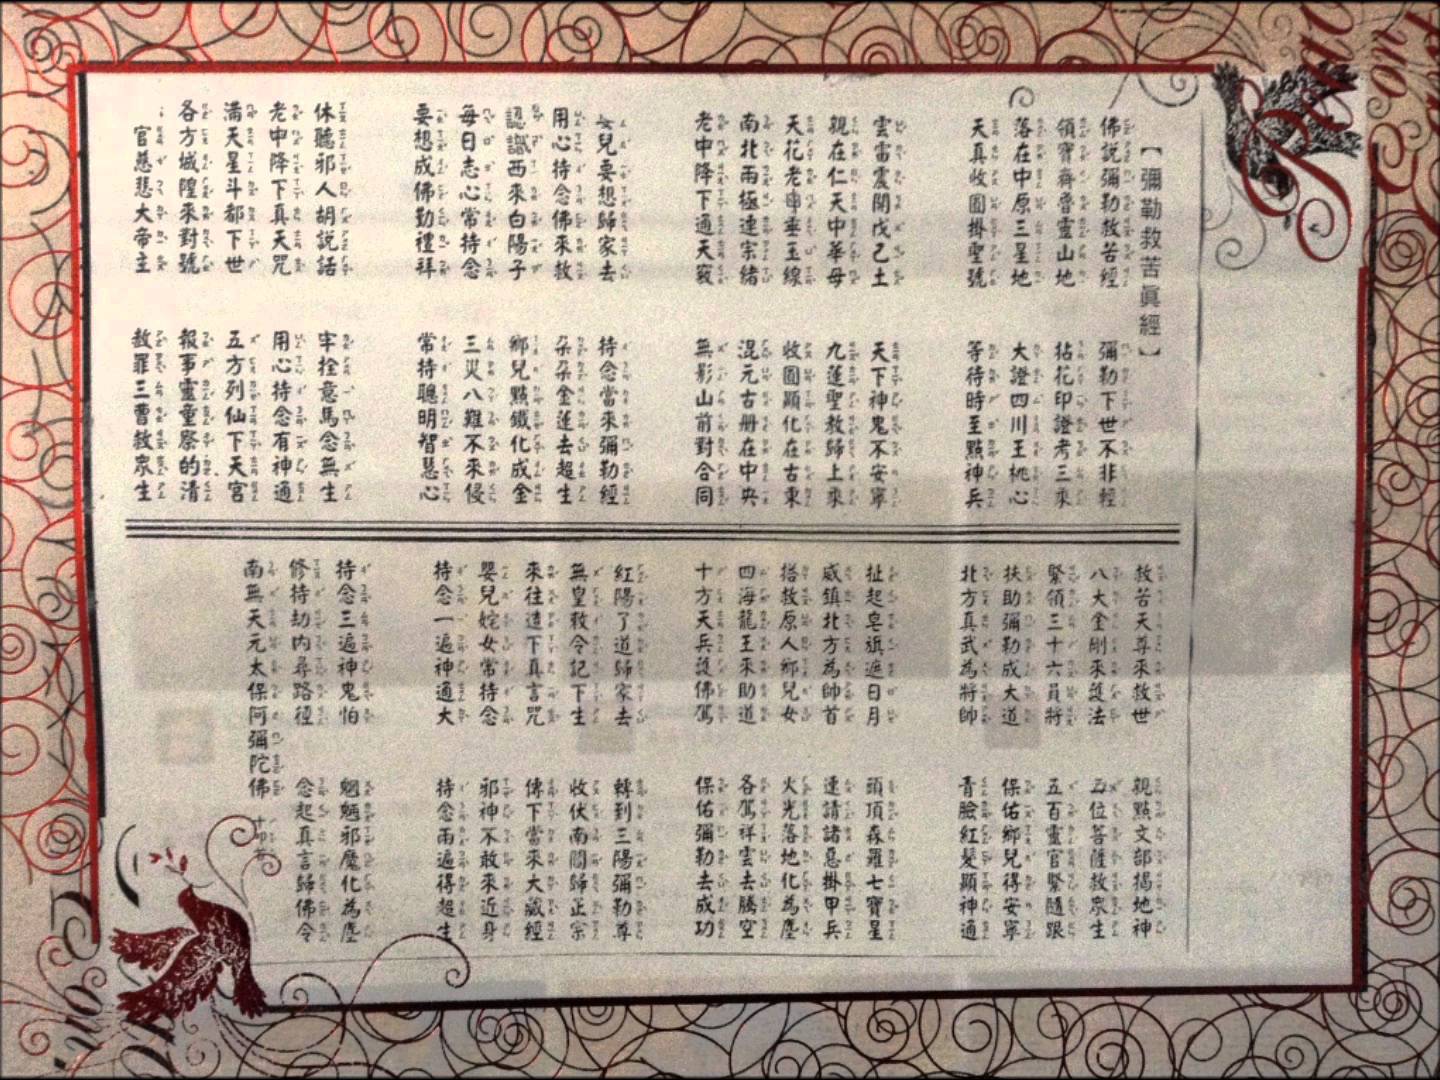 【彌勒救苦眞經】
佛說彌勒救苦經 彌勒下世不非輕
領寶齊魯靈山地 拈花印證考三乘
落在中原三星地 大證四川王桃心
天真收圓掛聖號 等待時至點神兵
雲雷震開戊己土 天下神鬼不安寧
親在仁天中華母 九蓮聖教歸上乘
天花老母垂玉線 收圓顯化在古東
南北兩極連宗緒 混元古册在中央
老中降下通天竅 無影山前對合同
兒要想歸家去 持念當來彌勒經
用心持念佛來救 朶朶金蓮去超生
認識西來白陽子 鄉兒點鐵化成金
每日志心常持念 三災八難不來侵
要想成佛勤禮拜 常持聰明智慧心
休聽邪人胡說話 牢拴意馬念無生
老中降下真天咒 用心持念有神通
滿天星斗都下世 五方列仙下天宮
各方城隍來對號 報事靈童察的清
官慈悲大帝主 赦罪三曹救衆生
救苦天尊來救世 親點文部揭地神
八大金剛來護法 五位菩薩救衆生
緊領三十六員將 五百靈官緊隨跟
扶助彌勒成大道 保佑鄉兒得安寧
北方真武為將帥 青臉紅髮顯神通
扯起皂旗遮日月 頭頂森羅七寶星
威鎮北方為帥首 速請諸惡掛甲兵
搭救原人鄉兒女 火光落地化為塵
四海龍王來助道 各駕祥雲去騰空
十方天兵護佛駕 保佑彌勒去成功
紅陽了道歸家去 轉到三陽彌勒尊
無皇敕令記下生 收伏南閻歸正宗
來往造下真言咒 傳下當來大藏經
嬰兒姹女常持念 邪神不敢來近身
持念一遍神通大 持念兩遍得超生
持念三遍神鬼怕 魍魎邪魔化為塵
修持劫內尋路徑 念起真言歸佛令
南無天元太保阿彌陀佛